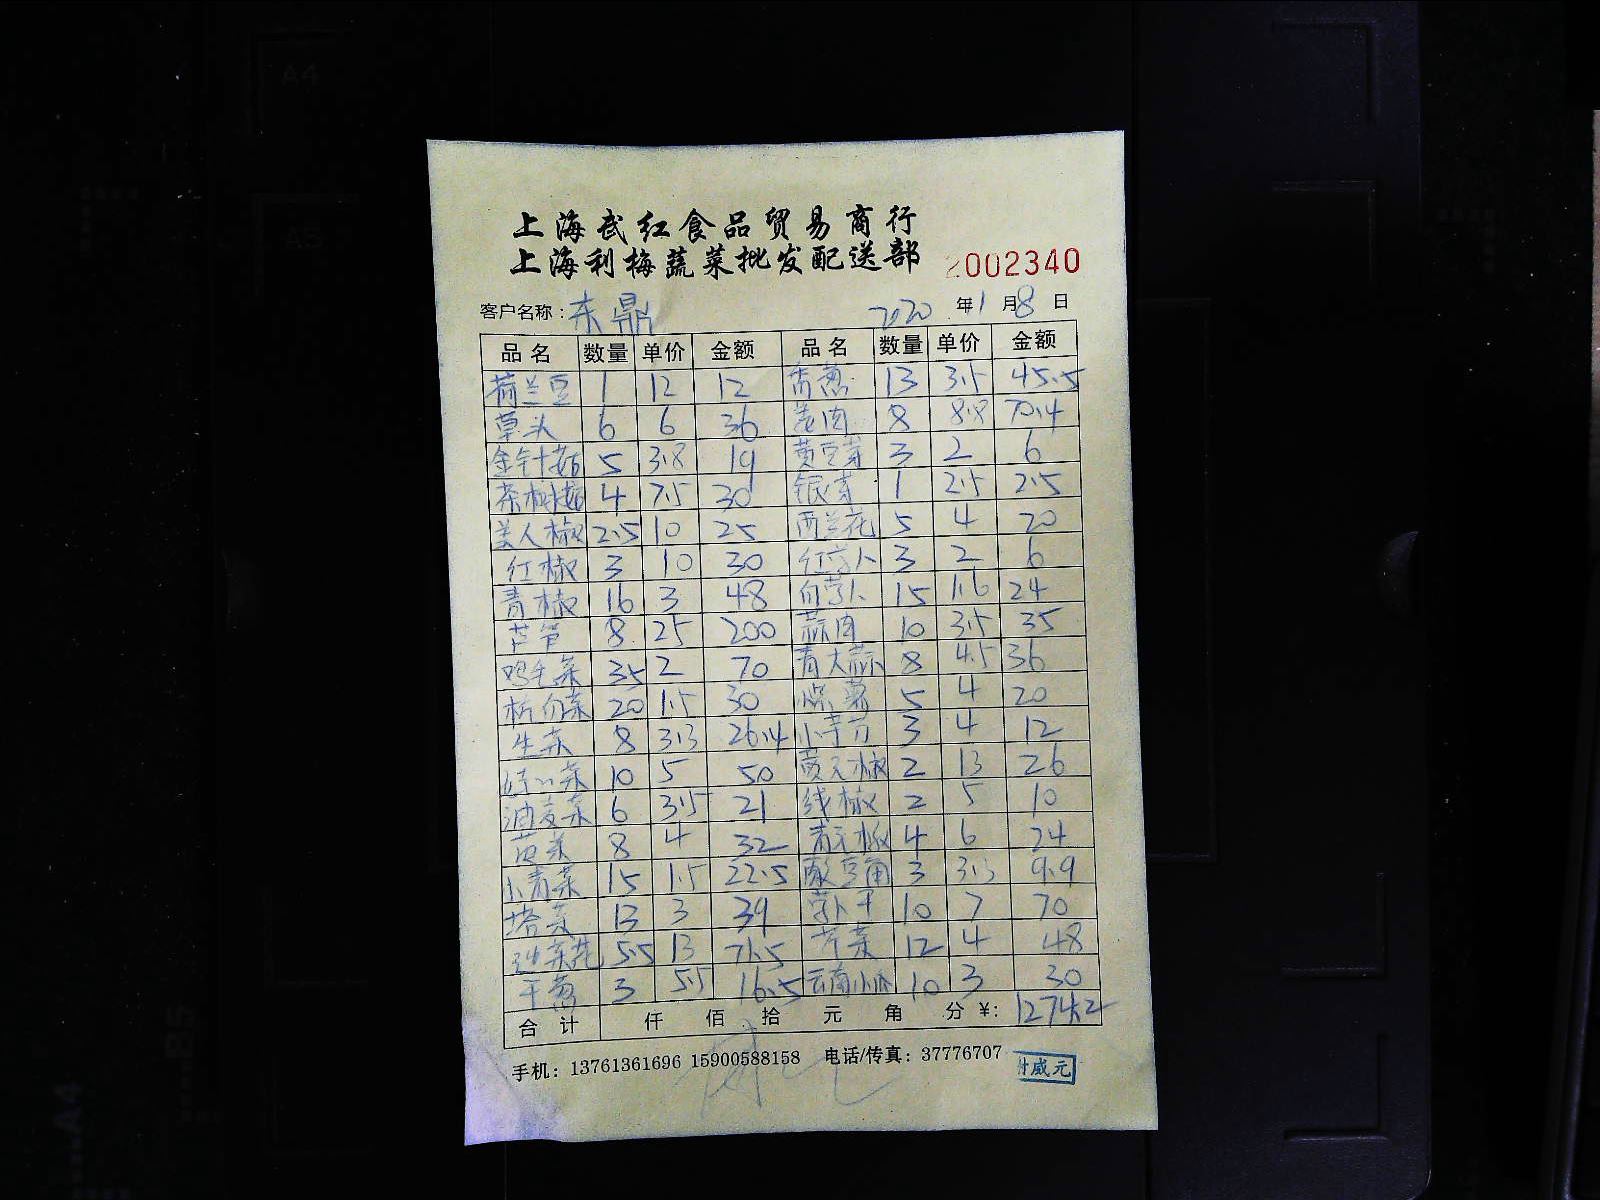 上海武红食品贸易商行
上海利梅蔬菜批发配送部 2002340
客户名称：东鼎 2020 年 1 月 8 日
品名 数量 单价 金额 品名 数量 单价 金额
荷兰豆 1 12 12 香葱 13 3.5 45.5
草头 6 6 36 姜肉 8 8.8 70.4
金针菇 5 3.8 19 黄豆芽 3 2 6
茶树菇 4 7.5 30 银芽 1 2.5 2.5
美人椒 2.5 10 25 西兰花 5 4 20
红椒 3 10 30 红萝卜 3 2 6
青椒 16 3 48 白萝卜 15 1.6 24
芦笋 8 25 200 蒜肉 10 3.5 35
鸡毛菜 35 2 70 青大蒜 8 4.5 36
杭白菜 20 1.5 30 紫薯 5 4 20
生菜 8 3.3 26.4 小芋艿 3 4 12
10 5 50 黄尖椒 2 13 26
油麦菜 6 3.5 21 线椒 2 5 10
8 4 32 青尖椒 4 6 24
小青菜 15 1.5 22.5 酸豆角 3 3.3 9.9
塔菜 13 3 39 萝卜干 10 7 70
菜花 5.5 13 71.5 芹菜 12 4 48
干葱 3 5.5 16.5 云南小瓜 10 3 30
合计 仟 佰 拾 元 角 分 ¥: 1274.2
手机：13761361696 15900588158 电话/传真：37776707 付威元